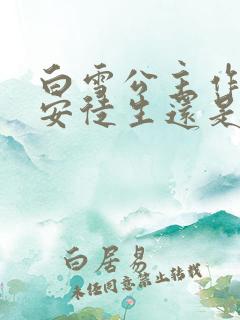 白雪公主作
安徒生還是
白居易
未经同意禁止转载